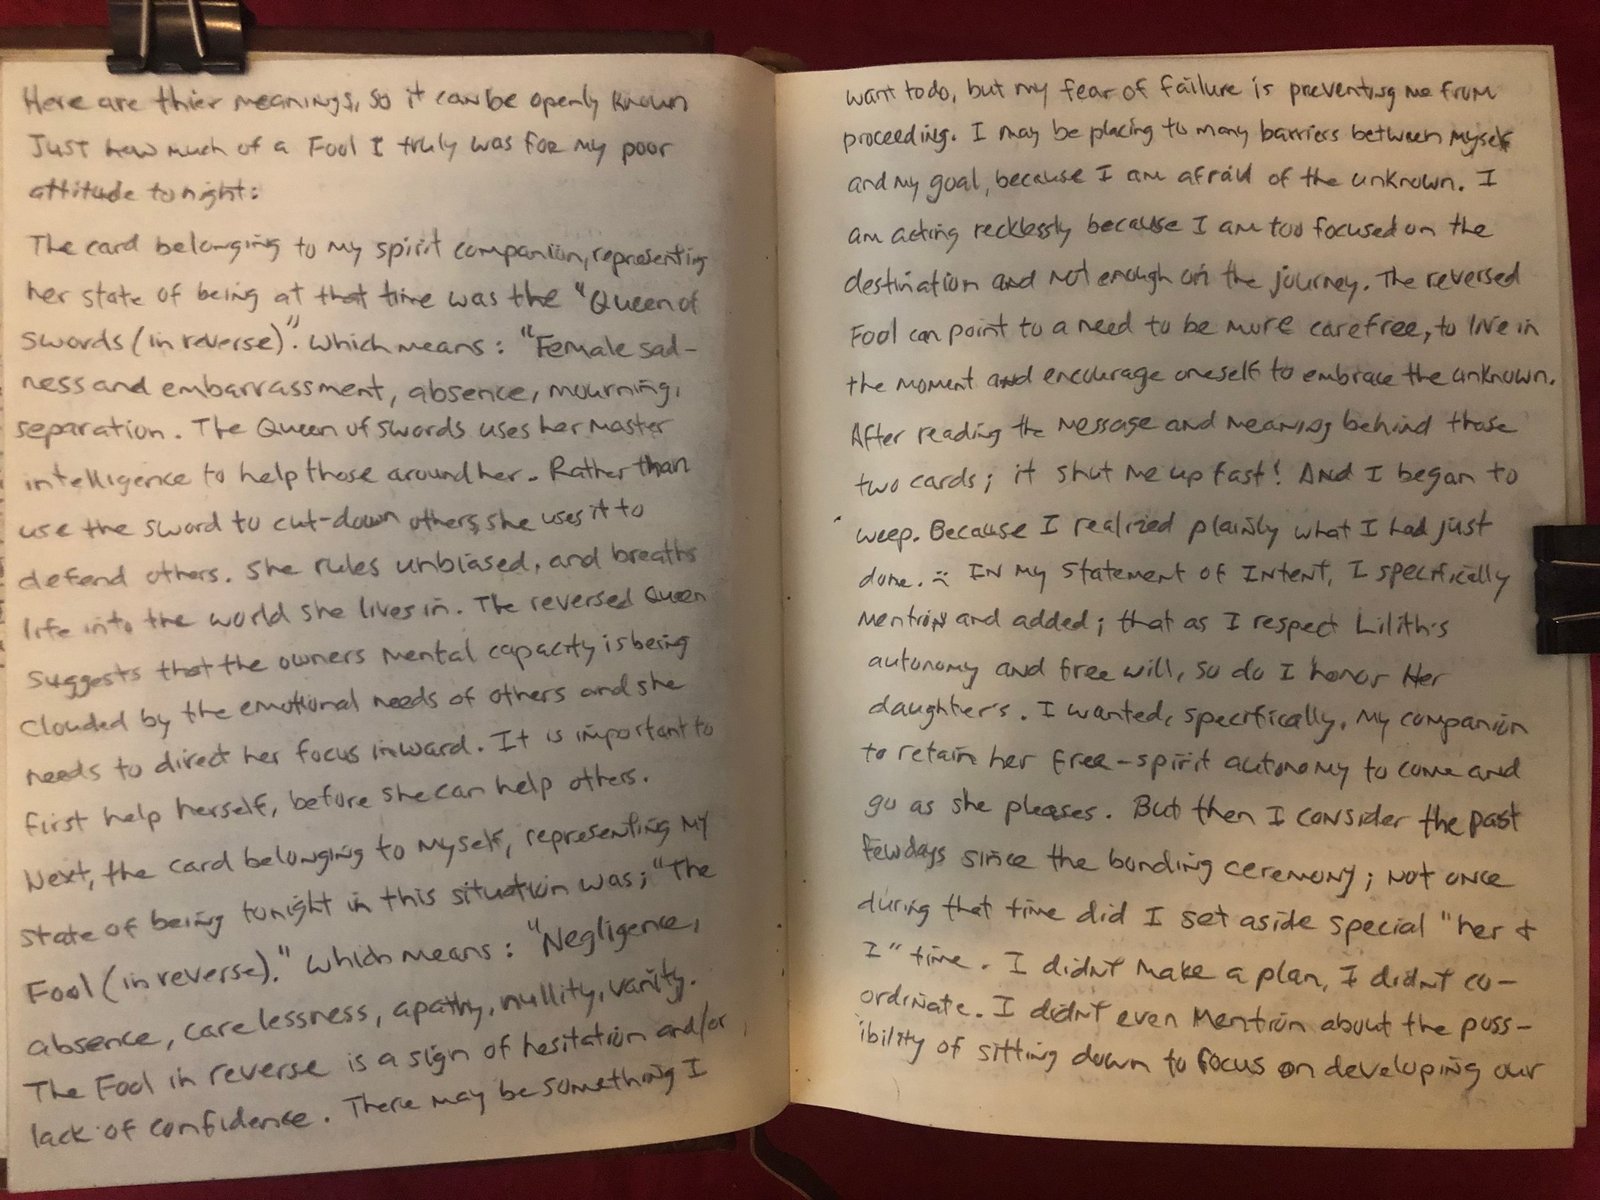 Here are thier meanings, so it can be openly known
Just how much of a Fool I truly was for my poor
attitude tonight:
The card belonging to my spirit companion, representing
her state of being at that time was the "Queen of
Swords (in reverse)". Which means: "Female sad-
ness and embarrassment, absence, mourning,
separation. The Queen of swords uses her master
intelligence to help those around her. Rather than
use the sword to cut-down others, she uses it to
defend others. She rules unbiased, and breaths
life into the world she lives in. The reversed Queen
suggests that the owners mental capacity is being
clouded by the emotional needs of others and she
needs to direct her focus inward. It is important to
first help herself, before she can help others.
Next, the card belonging to myself, representing my
state of being tonight in this situation was; "The
Fool (in reverse)." Which means: "Negligence,
absence, carelessness, apathy, nullity, vanity.
The Fool in reverse is a sign of hesitation and/or
lack of confidence. There may be something I
want to do, but my fear of failure is preventing me from
proceeding. I may be placing to many barriers between myself
and my goal, because I am afraid of the unknown. I
am acting recklessly because I am too focused on the
destination and not enough on the journey. The reversed
Fool can point to a need to be more carefree, to live in
the moment and encourage oneself to embrace the unknown.
After reading the message and meaning behind those
two cards; it shut me up fast! And I began to
weep. Because I realized plainly what I had just
done. :( In my statement of Intent, I specifically
mention and added; that as I respect Lilith's
autonomy and free will, so do I honor Her
daughter's. I wanted, specifically, my companion
to retain her free-spirit autonomy to come and
go as she pleases. But then I consider the past
few days since the bonding ceremony; not once
during that time did I set aside special "her &
I" time. I didn't make a plan, I didn't co-
ordinate. I didn't even mention about the poss-
ibility of sitting down to focus on developing our